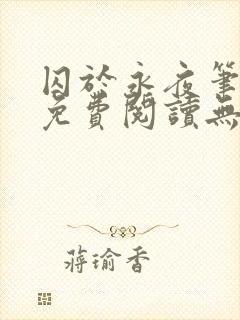 囚於永夜筆
免費閱讀無
蔣瑜香